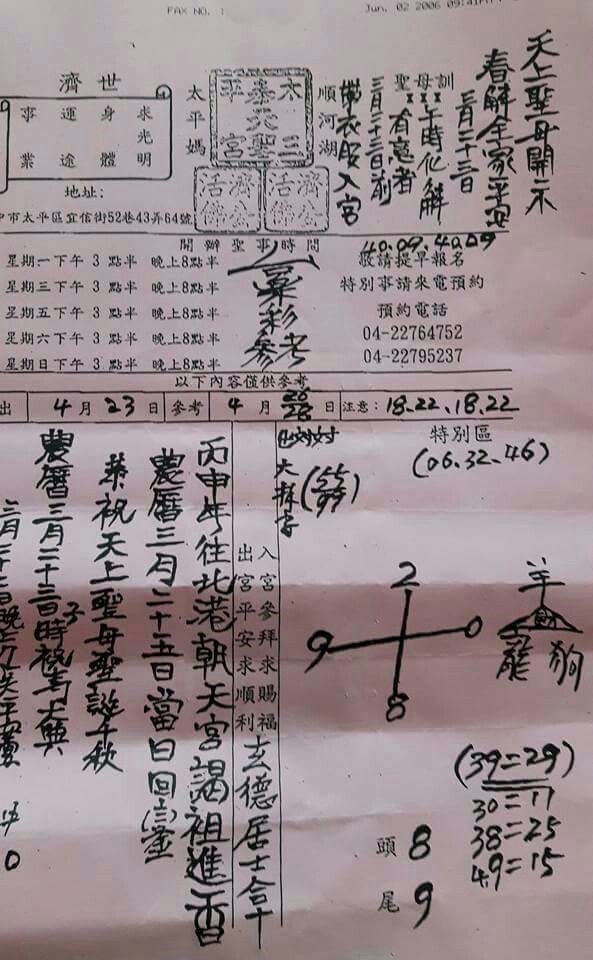 FAX NO. :
Jun. 02 2006 09:41
天上聖母開示
春解全家平安
三月二十三日
聖母訓
午時化解
有意者
三月二十三日前
帶衣服入宮
順河湖
太平媽
濟世
求光明
身體
運途
事業
地址:
中市太平區宜信街52巷43弄64號
濟公活佛
濟公活佛
開辦聖事時間
星期一下午 3 點半 晚上8點半
星期三下午 3 點半 晚上8點半
星期五下午 3 點半 晚上8點半
星期六下午 3 點半 晚上8點半
星期日下午 3 點半 晚上8點半
六合彩參考
40.09.40.09
敬請提早報名
特別事請來電預約
預約電話
04-22764752
04-22795237
以下內容僅供參考
出 4 月 23 日 參考 4 月 26 28 日 注意: 18.22.18.22
特別區
(06.32.46)
2
9 0
8
羊
財
龍 狗
(39=29)
30=11
38=25
49=15
頭 8
尾 9
入宮參拜求賜福
出宮平安求順利
玄德居士合十
丙申年往北港朝天宮謁祖進香
農曆三月二十五日當日回鑾
恭祝天上聖母聖誕千秋
農曆三月二十三日子時祝壽大典